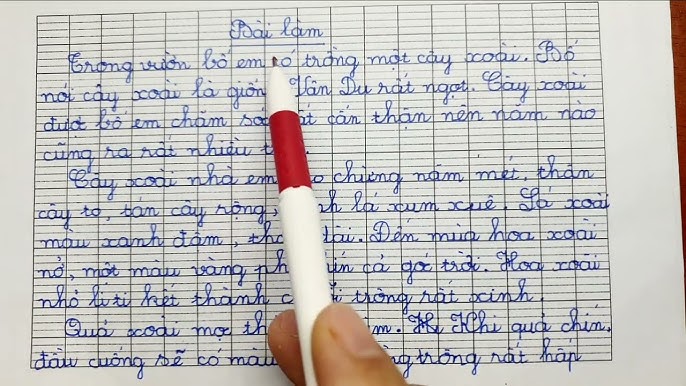 Bài làm
Trong vườn bố em có trồng một cây xoài. Bố
nói cây xoài là giống Vân Du rất ngọt. Cây xoài
được bố em chăm rất cẩn thận nên năm nào
cũng ra rất nhiều
Cây xoài nhà em chừng năm mét, thân
cây to, tán cây rộng, lá xum xuê. Lá xoài
màu xanh đậm, dài. Đến mùa hoa xoài
nở, một màu vàng cả góc trời. Hoa xoài
nhỏ li ti kết thành trông rất xinh.
Quả xoài mọc H Khi quả chín,
đầu cuống sẽ có màu trông rất hấp